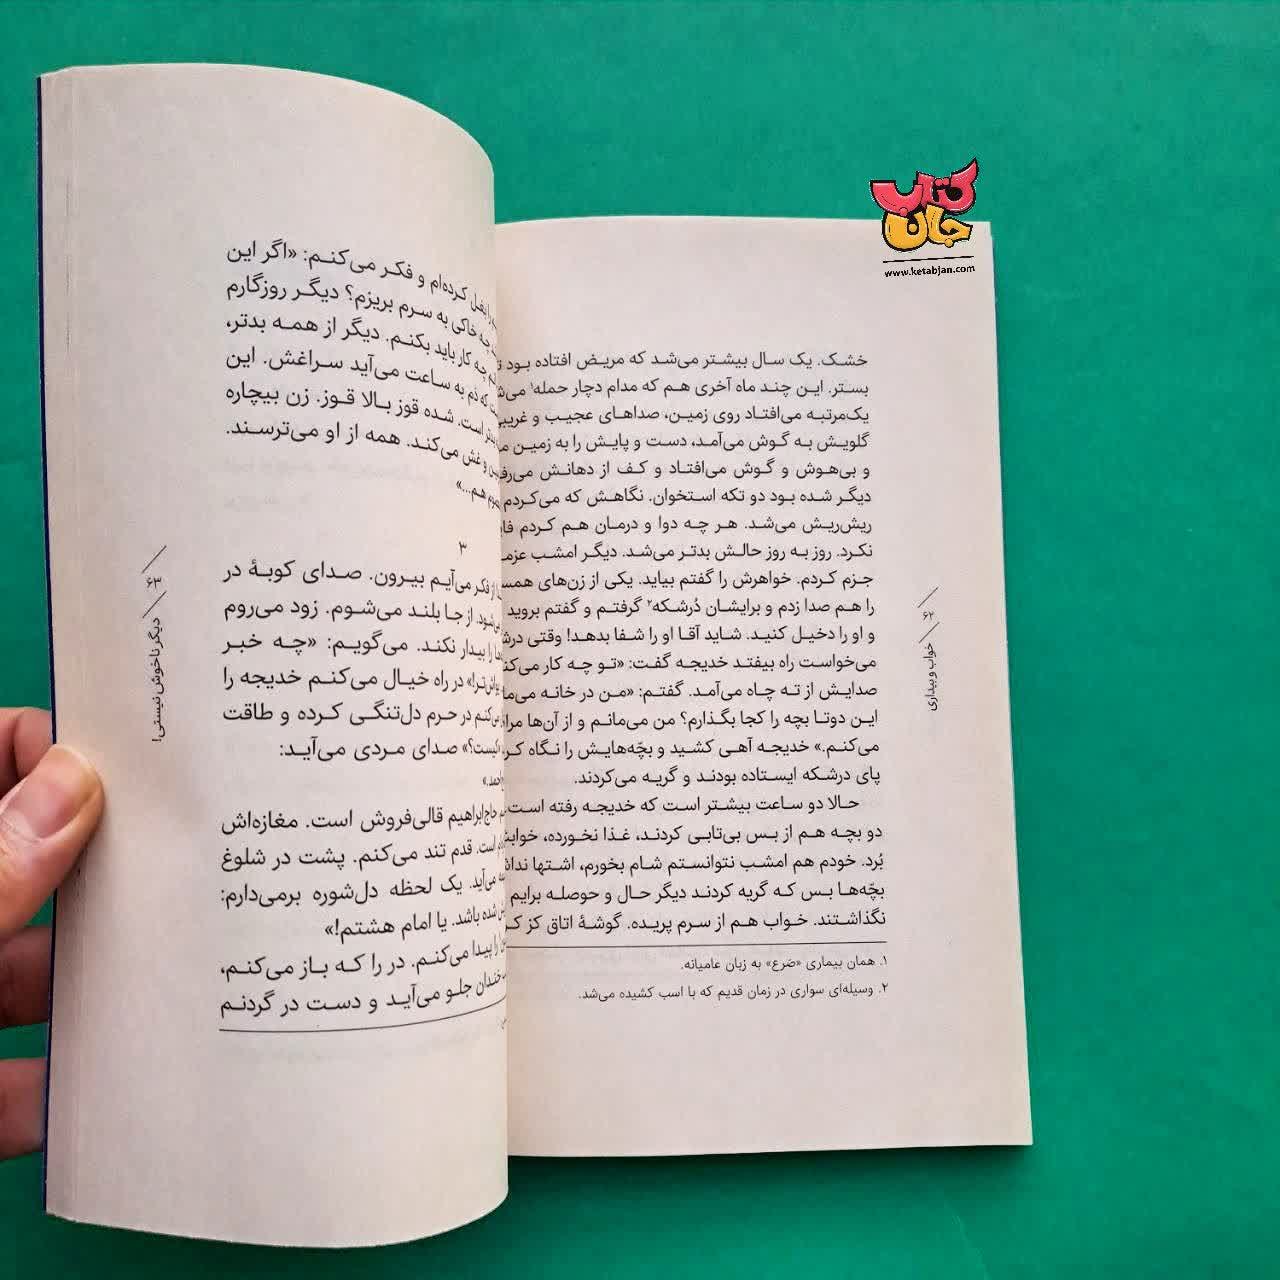 کتاب
جان
www.ketabjan.com
خشک. یک سال بیشتر می‌شد که مریض افتاده بود
بستر. این چند ماه آخری هم که مدام دچار حمله۱
یک‌مرتبه می‌افتاد روی زمین، صداهای عجیب و
گلویش به گوش می‌آمد، دست و پایش را به زمین
و بی‌هوش و گوش می‌افتاد و کف از دهانش
دیگر شده بود دو تکه استخوان. نگاهش که می‌کردم
ریش‌ریش می‌شد. هر چه دوا و درمان هم کردم
نکرد. روز به روز حالش بدتر می‌شد. دیگر امشب
جزم کردم. خواهرش را گفتم بیاید. یکی از زن‌های
را هم صدا زدم و برایشان دُرشکه۲ گرفتم و گفتم بروید
و او را دخیل کنید. شاید آقا او را شفا بدهد! وقتی
می‌خواست راه بیفتد خدیجه گفت: «تو چه کار
صدایش از ته چاه می‌آمد. گفتم: «من در خانه
این دوتا بچه را کجا بگذارم؟ من می‌مانم و از آن‌ها
می‌کنم.» خدیجه آهی کشید و بچّه‌هایش را نگاه
پای درشکه ایستاده بودند و گریه می‌کردند.
حالا دو ساعت بیشتر است که خدیجه رفته است.
دو بچه هم از بس بی‌تابی کردند، غذا نخورده،
بُرد. خودم هم امشب نتوانستم شام بخورم، اشتها
بچّه‌ها بس که گریه کردند دیگر حال و حوصله برایم
نگذاشتند. خواب هم از سرم پریده. گوشهٔ اتاق کز
۱. همان بیماری «صَرع» به زبان عامیانه.
۲. وسیله‌ای سواری در زمان قدیم که با اسب کشیده می‌شد.
۶۲
خواب و بیداری
بغل کرده‌ام و فکر می‌کنم: «اگر این
چه خاکی به سرم بریزم؟ دیگر روزگارم
چه کار باید بکنم. دیگر از همه بدتر،
که دَم به ساعت می‌آید سراغش. این
بدتر است. شده قوز بالا قوز. زن بیچاره
و غش می‌کند. همه از او می‌ترسند.
هم...»
۳
از فکر می‌آیم بیرون. صدای کوبهٔ در
از جا بلند می‌شوم. زود می‌روم
را بیدار نکند. می‌گویم: «چه خبر
در راه خیال می‌کنم خدیجه را
در حرم دل‌تنگی کرده و طاقت
صدای مردی می‌آید:
حاج‌ابراهیم قالی‌فروش است. مغازه‌اش
است. قدم تند می‌کنم. پشت در شلوغ
می‌آید. یک لحظه دل‌شوره برمی‌دارم:
شده باشد. یا امام هشتم!»
را پیدا می‌کنم. در را که باز می‌کنم،
خندان جلو می‌آید و دست در گردنم
۶۳
دیگر ناخوش نیستی!